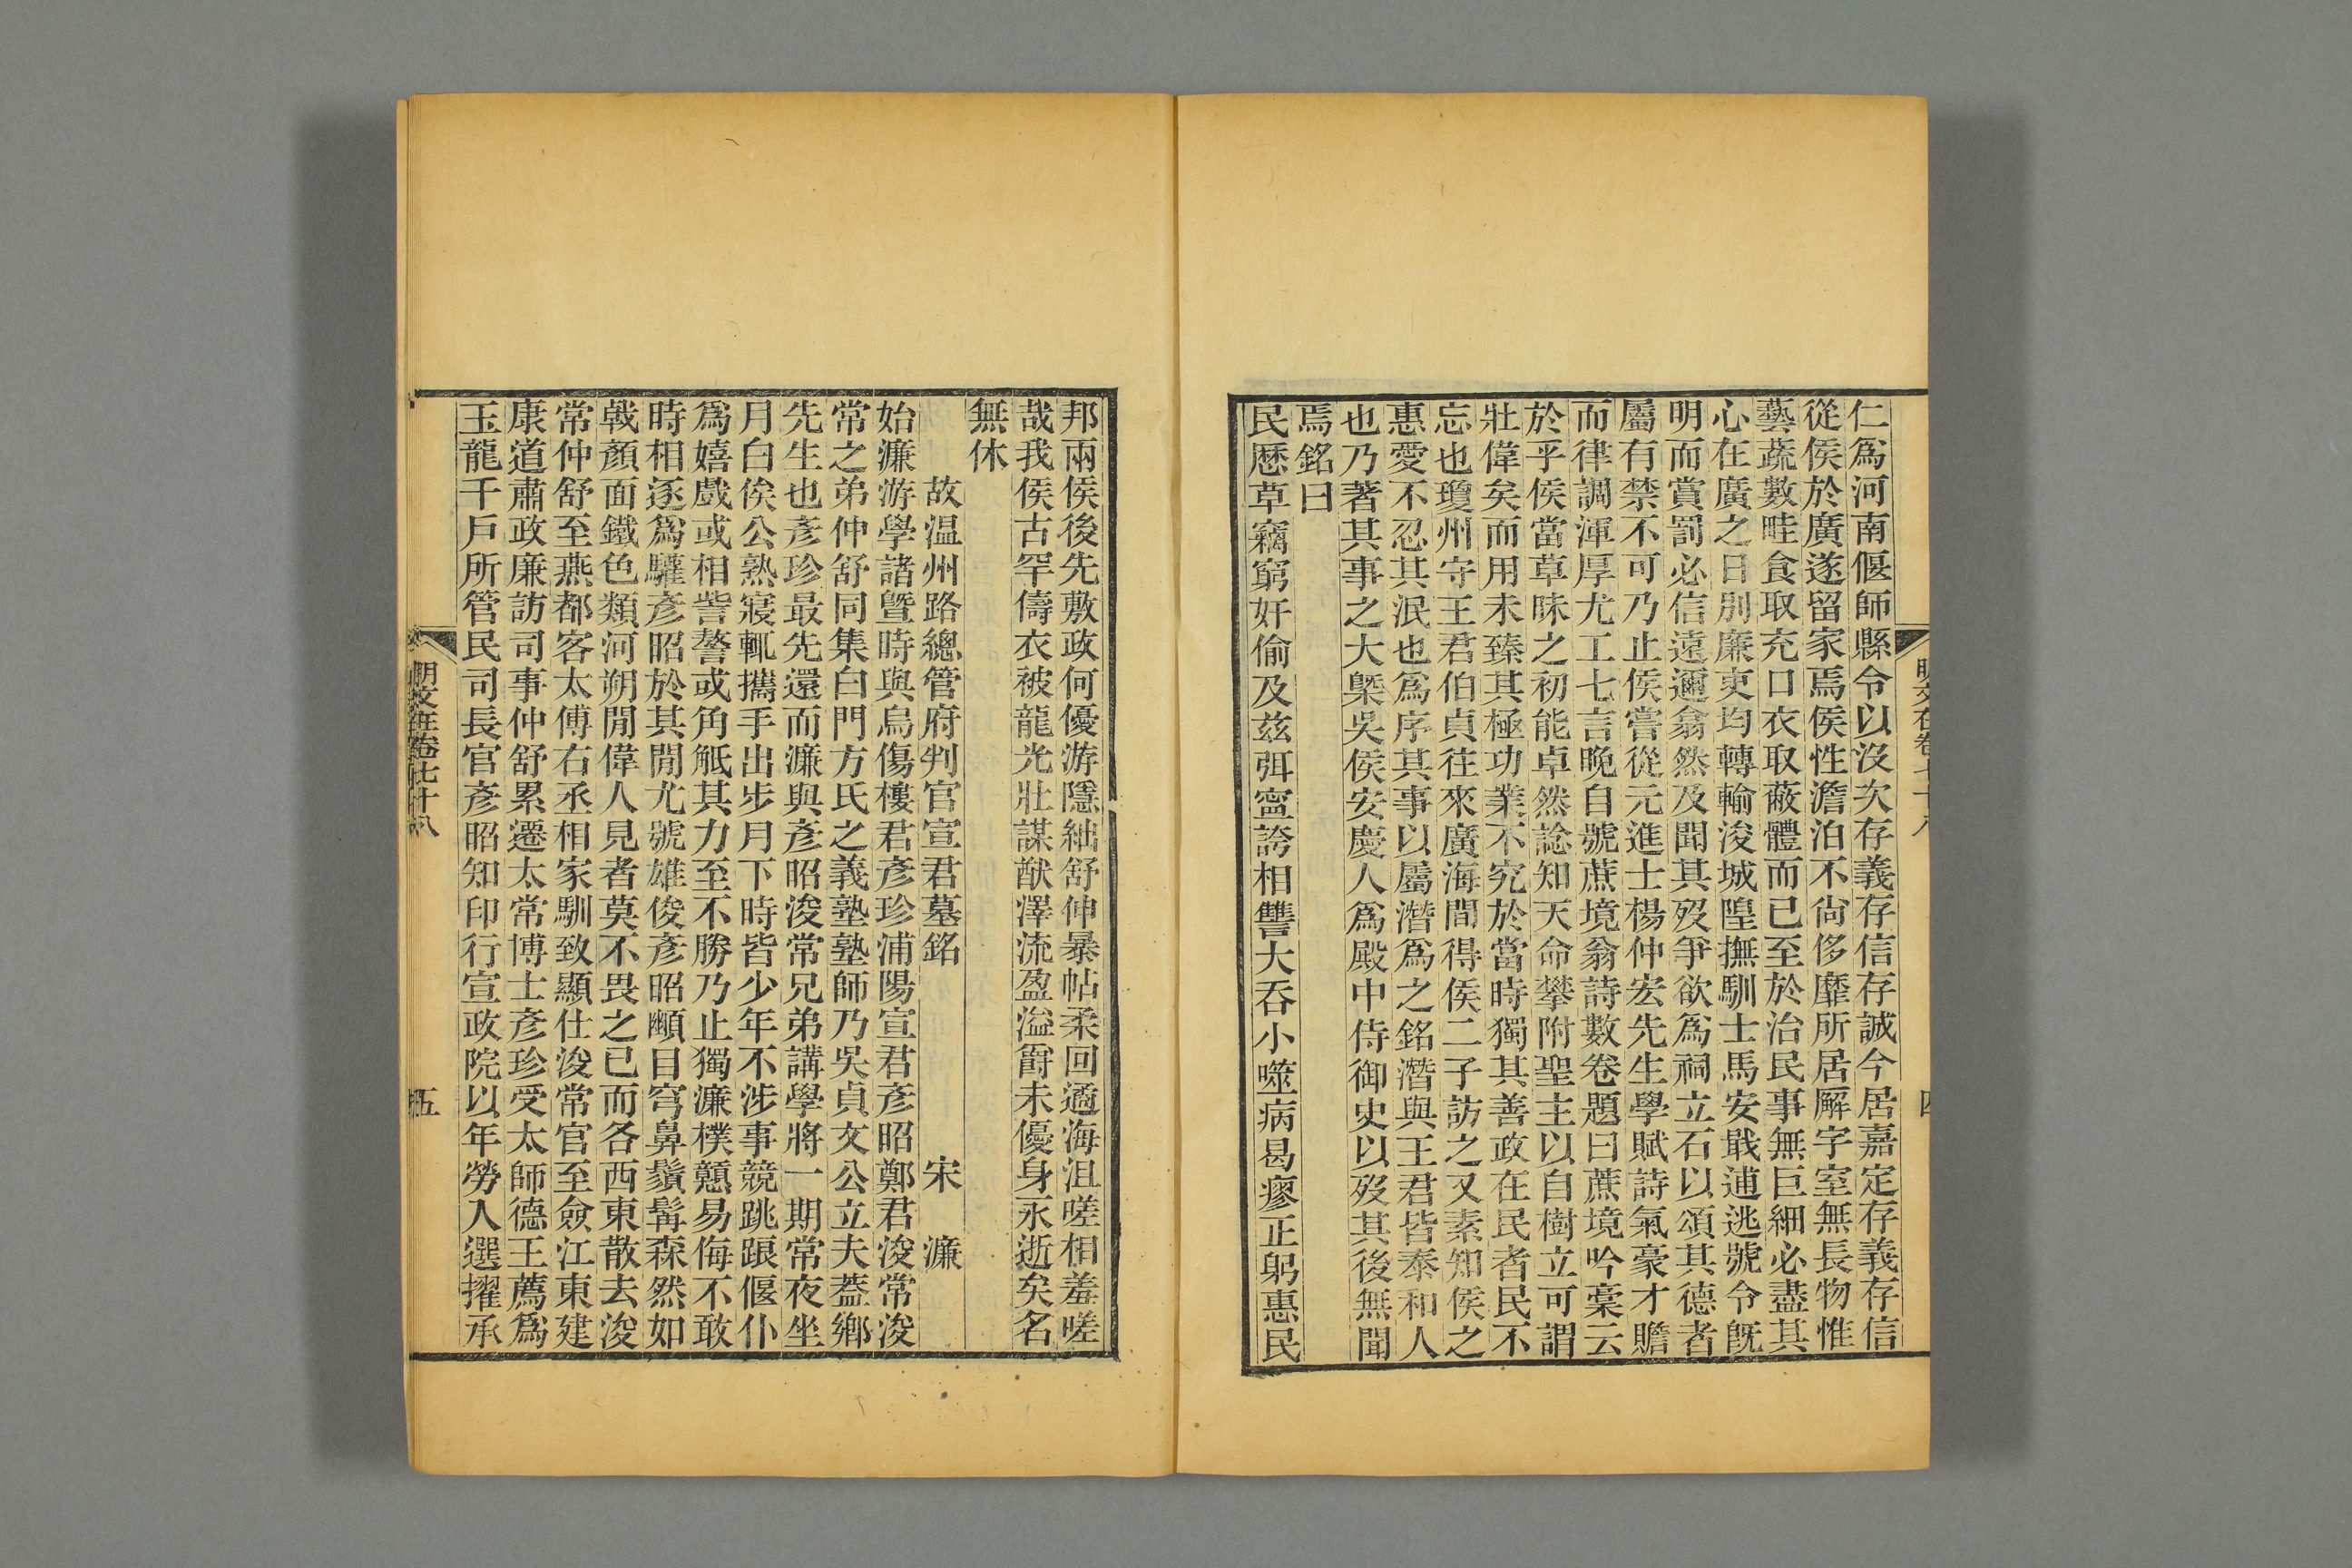 仁爲河南偃師縣令以沒次存義存信存誠今居嘉定存義存信
從侯於廣遂留家焉侯性澹泊不尙侈靡所居廨宇室無長物惟
藝蔬數畦食取充口衣取蔽體而已至於治民事無巨細必盡其
心在廣之日別廉吏均轉輸浚城隍撫馴士馬安戢逋逃號令旣
明而賞罰必信遠邇翕然及聞其歿爭欲爲祠立石以頌其德者
屬有禁不可乃止侯嘗從元進士楊仲宏先生學賦詩氣豪才贍
而律調渾厚尤工七言晩自號蔗境翁詩數卷題曰蔗境吟稾云
於乎侯當草昧之初能卓然諗知天命攀附聖主以自樹立可謂
壯偉矣而用未臻其極功業不究於當時獨其善政在民者民不
忘也瓊州守王君伯貞往來廣海間得侯二子訪之又素知侯之
惠愛不忍其泯也爲序其事以屬潛爲之銘潛與王君皆泰和人
也乃著其事之大槩吳侯安慶人爲殿中侍御史以歿其後無聞
焉銘曰
民厯草竊窮奸偷及玆弭寍誇相讐大吞小噬病曷瘳正躬惠民
明文在卷七十八
四
邦兩侯後先敷政何優游隱紬舒伸暴帖柔回遹海沮嗟相羞嗟
哉我侯古罕儔衣被龍光壯謀猷澤流盈溢爵未優身永逝矣名
無休
故温州路總管府判官宣君墓銘 宋濂
始濂游學諸曁時與烏傷樓君彥珍浦陽宣君彥昭鄭君浚常浚
常之弟仲舒同集白門方氏之義塾塾師乃吳貞文公立夫葢鄕
先生也彥珍最先還而濂與彥昭浚常兄弟講學將一期常夜坐
月白俟公熟寢輒攜手出步月下時皆少年不涉事競跳踉偃仆
爲嬉戲或相訾謷或角觝其力至不勝乃止獨濂樸戇易侮不敢
時相逐爲驩彥昭於其閒尤號雄俊彥昭顱目穹鼻鬚髯森然如
戟顏面鐵色類河朔閒偉人見者莫不畏之已而各西東散去浚
常仲舒至燕都客太傅右丞相家馴致顯仕浚常官至僉江東建
康道肅政廉訪司事仲舒累遷太常博士彥珍受太師德王薦爲
玉龍千戶所管民司長官彥昭知印行宣政院以年勞入選擢承
明文在卷七十八
五